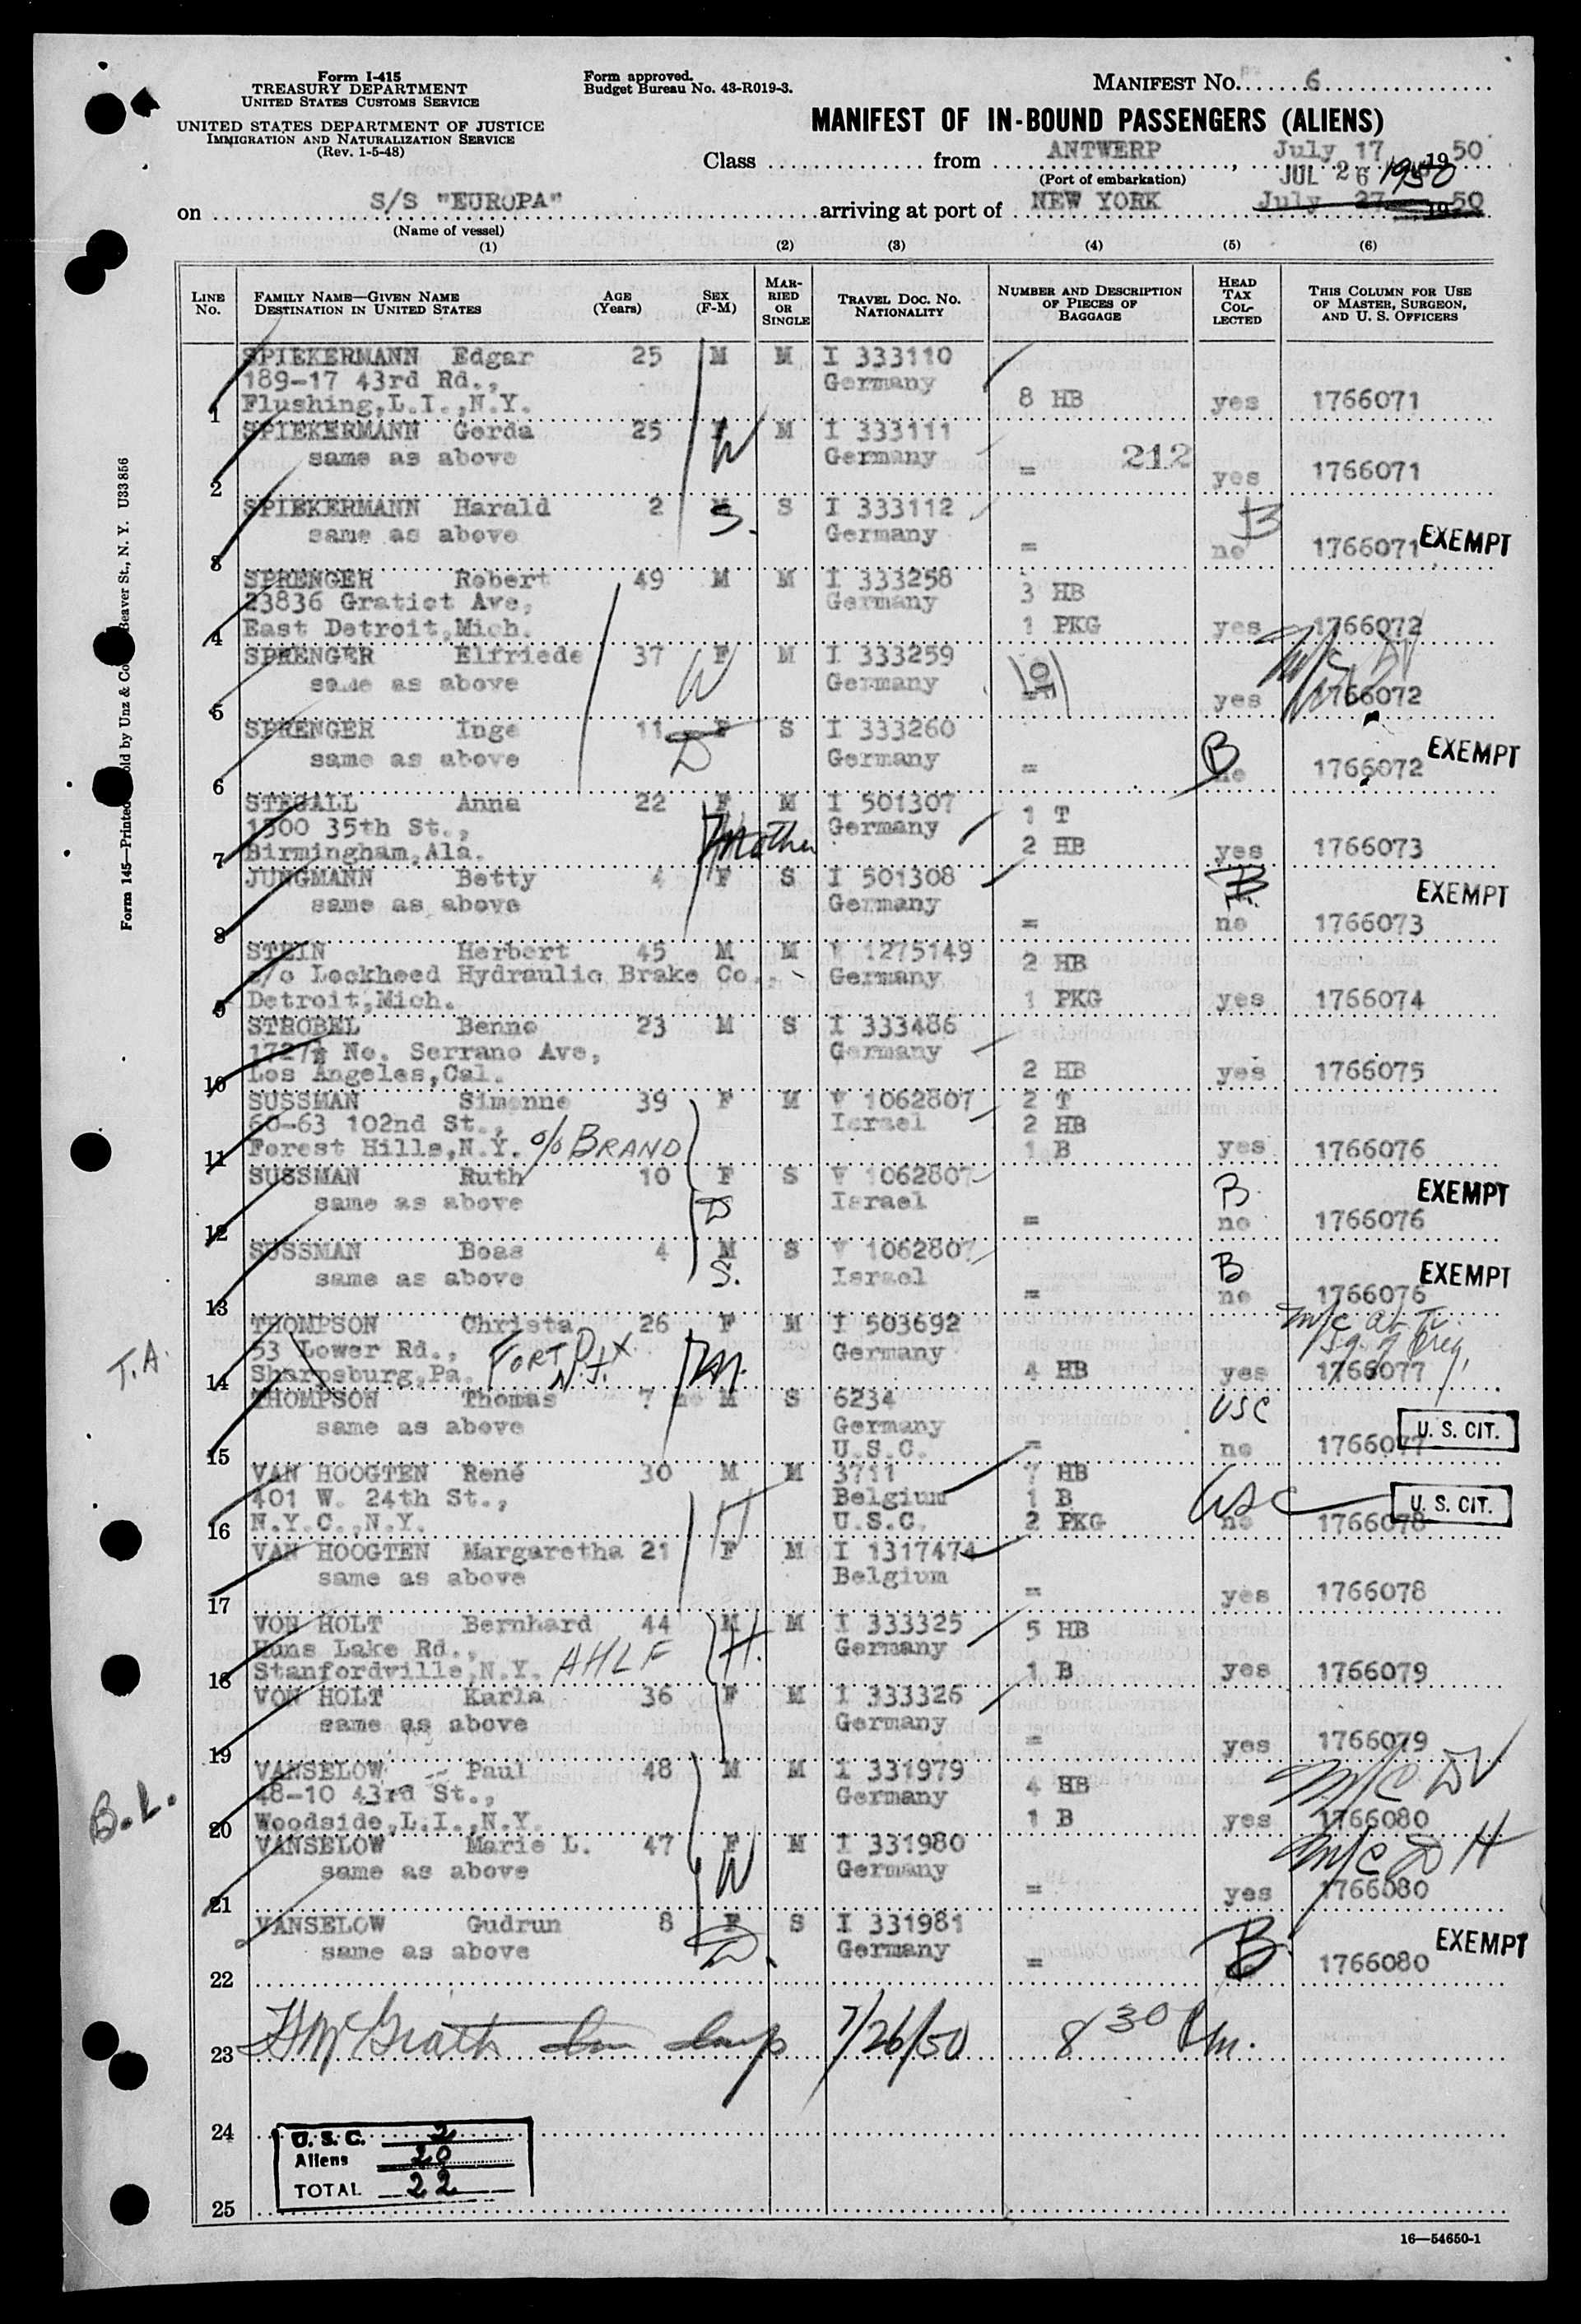 Form I-415
TREASURY DEPARTMENT
UNITED STATES CUSTOMS SERVICE
UNITED STATES DEPARTMENT OF JUSTICE
IMMIGRATION AND NATURALIZATION SERVICE
(Rev. 1-5-48)
Form approved.
Budget Bureau No. 43-R019-3.
MANIFEST No. 6
MANIFEST OF IN-BOUND PASSENGERS (ALIENS)
Class from ANTWERP, July 17 1950
(Port of embarkation)
JUL 26 1950
on S/S "EUROPA" arriving at port of NEW YORK July 27 1950
(Name of vessel)
(1) (2) (3) (4) (5) (6)
LINE No. FAMILY NAME—GIVEN NAME DESTINATION IN UNITED STATES AGE (Years) SEX (F-M) MARRIED OR SINGLE TRAVEL DOC. No. NATIONALITY NUMBER AND DESCRIPTION OF PIECES OF BAGGAGE HEAD TAX COLLECTED THIS COLUMN FOR USE OF MASTER, SURGEON, AND U. S. OFFICERS
SPIEKERMANN Edgar 25 M M I 333110
189-17 43rd Rd., Germany
1 Flushing,L.I.,N.Y. 8 HB yes 1766071
SPIEKERMANN Gerda 25 F W M I 333111
same as above Germany 212
2 = yes 1766071
SPIEKERMANN Harald 2 M S. S I 333112 B
same as above Germany
3 = no 1766071 EXEMPT
SPRENGER Robert 49 M M I 333258 3 HB
23836 Gratiot Ave, Germany
4 East Detroit,Mich. 1 PKG yes 1766072
SPRENGER Elfriede 37 F W M I 333259
same as above Germany
5 = yes 1766072
SPRENGER Inge 11 F D S I 333260
same as above Germany B EXEMPT
6 = no 1766072
STEGALL Anna 22 F M I 501307 1 T
1300 35th St., Mother Germany
7 Birmingham,Ala. 2 HB yes 1766073
JUNGMANN Betty 4 F S I 501308 B
same as above Germany EXEMPT
8 = no 1766073
STEIN Herbert 45 M M V 1275149 2 HB
c/o Lockheed Hydraulic Brake Co., Germany
9 Detroit,Mich. 1 PKG yes 1766074
STROBEL Benno 23 M S I 333486
1727½ No. Serrano Ave, Germany
10 Los Angeles,Cal. 2 HB yes 1766075
SUSSMAN Simonne 39 F M V 1062807 2 T
60-63 102nd St., Israel 2 HB
11 Forest Hills,N.Y. c/o BRAND 1 B yes 1766076
SUSSMAN Ruth 10 F D S V 1062807
same as above Israel B EXEMPT
12 = no 1766076
SUSSMAN Boas 4 M S. S V 1062807
same as above Israel B EXEMPT
13 = no 1766076
THOMPSON Christa 26 F M I 503692
53 Lower Rd., FORT Dix M. Germany
T.A. 14 Sharpsburg,Pa. 4 HB yes 1766077
THOMPSON Thomas 7 mo M S 6234 USC
same as above Germany
15 U.S.C. = no 1766077 U. S. CIT.
VAN HOOGTEN René 30 M M 3711 7 HB
401 W. 24th St., H Belgium 1 B USC U. S. CIT.
16 N.Y.C.,N.Y. U.S.C. 2 PKG no 1766078
VAN HOOGTEN Margaretha 21 F M I 1317474
same as above Belgium
17 = yes 1766078
VON HOLT Bernhard 44 M H. M I 333325 5 HB
Huns Lake Rd., Germany
18 Stanfordville,N.Y. AHLF 1 B yes 1766079
VON HOLT Karla 36 F M I 333326
same as above Germany
19 = yes 1766079
VANSELOW Paul 48 M M I 331979 4 HB
48-10 43rd St., Germany
B.L. 20 Woodside,L.I.,N.Y. 1 B yes 1766080
VANSELOW Marie L. 47 F W M I 331980
same as above Germany
21 = yes 1766080
VANSELOW Gudrun 8 F D. S I 331981
same as above Germany B EXEMPT
22 = 1766080
23 McGrath 7/26/50 8 30 Pm.
24
U. S. C. 2
Aliens 20
TOTAL 22
25
16—54650-1